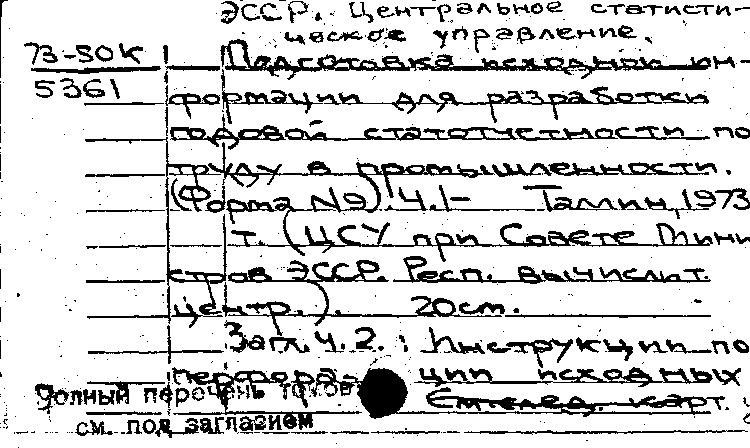 ЭССР. Центральное статисти-
ческое управление.
73-50к Подготовка исходной ин-
5361 формации для разработки
годовой статотчетности по
труду в промышленности.
(Форма №9). Ч.1- Таллин, 1973
т. (ЦСУ при Совете Мини
стров ЭССР. Респ. вычислит.
центр.). 20см.
Загл. ч. 2. : Инструкции по
перфорации исходных
Полный перечень томов карт.
см. под заглавием